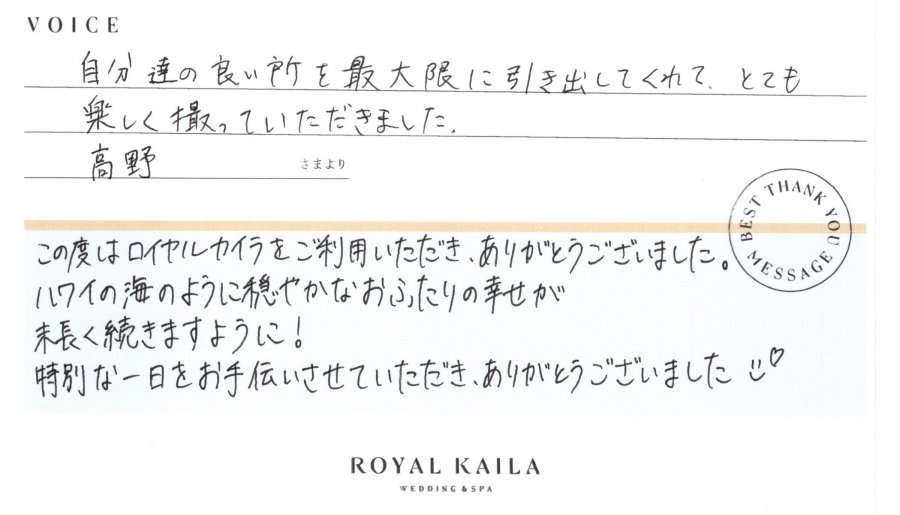 VOICE
自分達の良い所を最大限に引き出してくれて、とても
楽しく撮っていただきました。
高野 さまより
BEST THANK YOU MESSAGE
この度はロイヤルカイラをご利用いただき、ありがとうございました。
ハワイの海のように穏やかなおふたりの幸せが
末長く続きますように！
特別な一日をお手伝いさせていただき、ありがとうございました
ROYAL KAILA
WEDDING & SPA